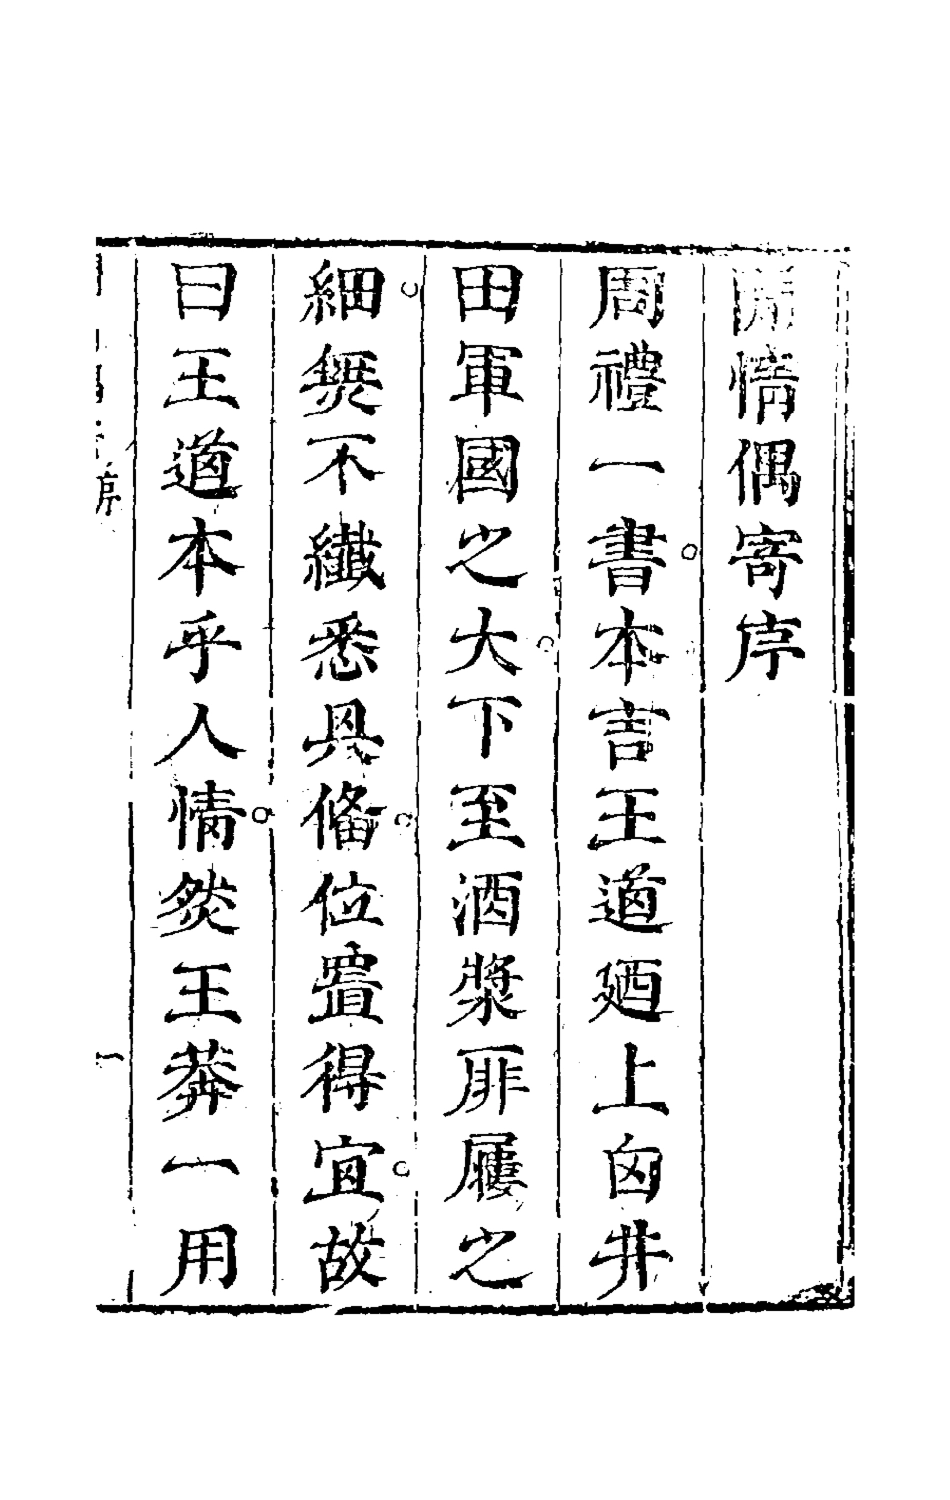 閒情偶寄序
周禮一書本言王道廼上自井
田軍國之大下至酒漿屝屨之
細無不纖悉具備位置得宜故
曰王道本乎人情然王莽一用
序
一